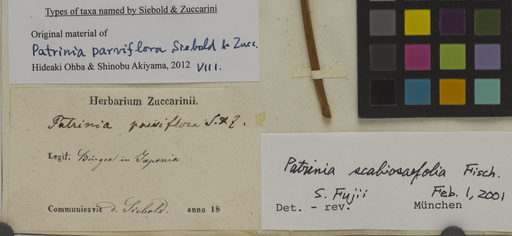 Types of taxa named by Siebold & Zuccarini
Original material of
Patrinia parviflora Siebold & Zucc.
Hideaki Ohba & Shinobu Akiyama, 2012 VIII.
Herbarium Zuccarinii.
Patrinia parviflora S. & Z.
Legit. Bürger in Japonia
Communicavit d. Siebold. anno 18
Patrinia scabiosaefolia Fisch.
S. Fujii Feb. 1, 2001
Det. - rev. München